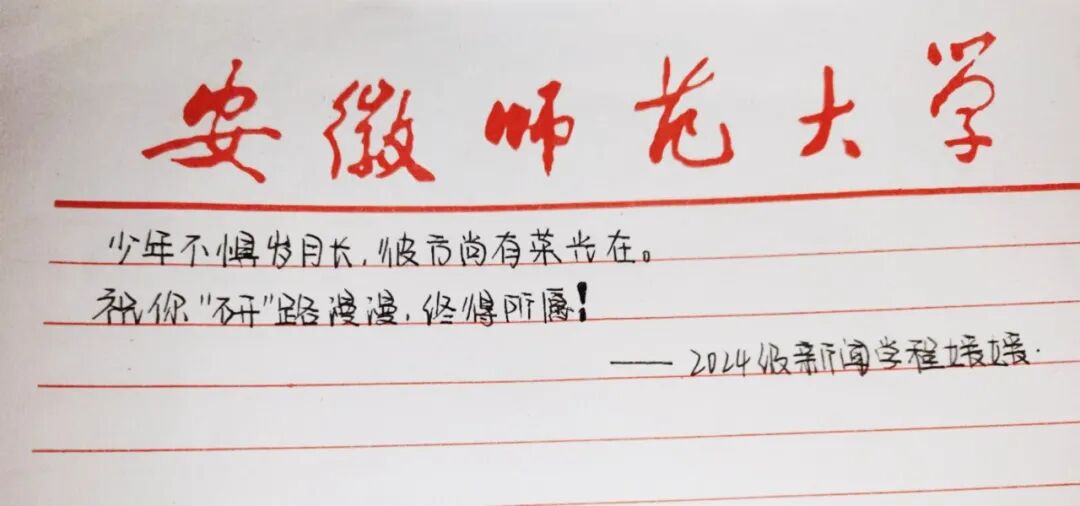 安徽师范大学
少年不惧岁月长，彼方尚有荣光在。
祝你“研”路漫漫，终得所愿！
——2024级新闻学程媛媛.